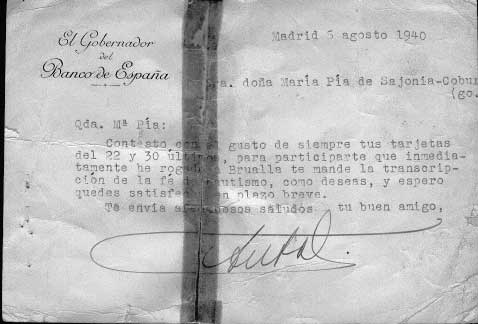 El Gobernador
del
Banco de España
Madrid 5 agosto 1940
doña María Pía de Sajonia-Cobur
(go.
Qda. Mª Pía:
Contesto con gusto de siempre tus tarjetas
del 22 y 30 para participarte que inmedia-
tamente he Brualla te mande la transcrip-
ción de la fé de bautismo, como deseas, y espero
quedes en plazo breve.
Te envia saludos tu buen amigo,